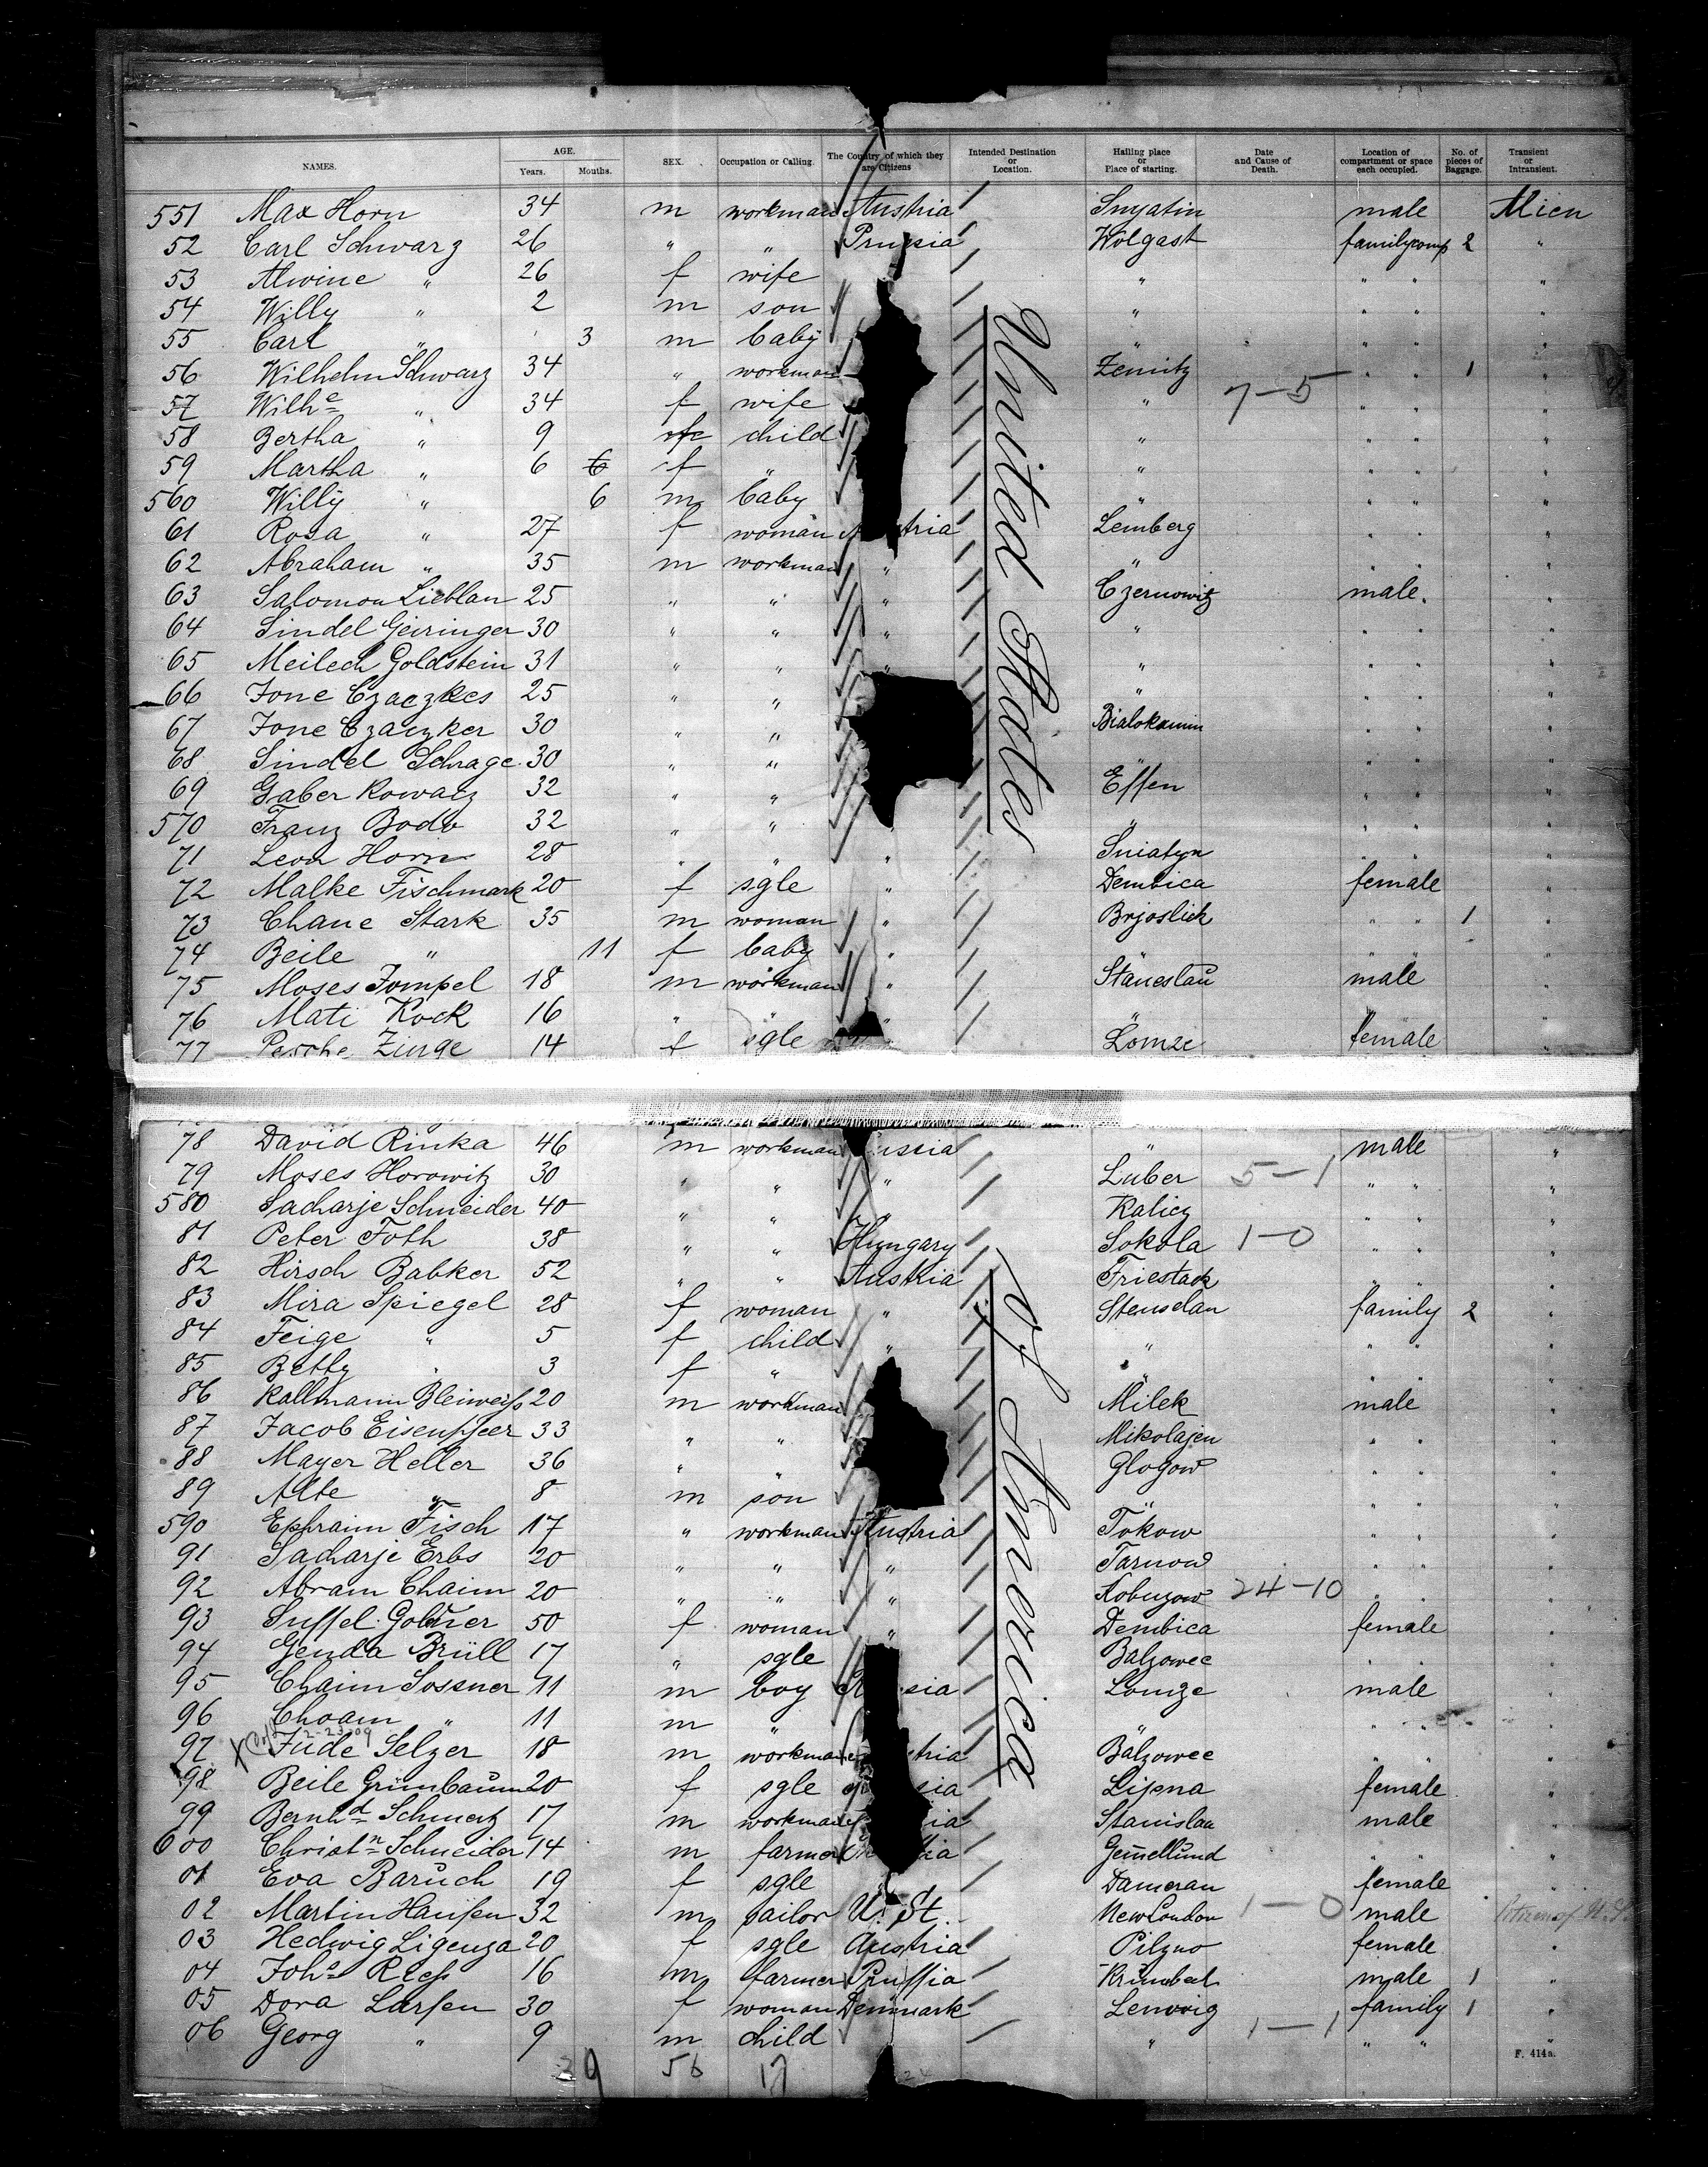 NAMES. AGE. Years. Months. SEX. Occupation or Calling. The Country of which they are Citizens Intended Destination or Location. Hailing place or Place of starting. Date and Cause of Death. Location of compartment or space each occupied. No. of pieces of Baggage. Transient or Intransient.
551 Max Horn 34 m workman Austria Snyatin male Alien
52 Carl Schwarz 26 " " Prussia Wolgast familycomp 2 "
53 Alwine " 26 f wife " " " "
54 Willy " 2 m son " " " "
55 Carl " 3 m baby " " " "
56 Wilhelm Schwarz 34 " workman Zemitz " " 1 "
57 Wilhe " 34 f wife " 7-5 " " "
58 Bertha " 9 f child " " " "
59 Martha " 6 6 f " " " " "
560 Willy " 6 m baby " " " "
61 Rosa " 27 f woman Austria Lemberg " " "
62 Abraham " 35 m workman " " " " "
63 Salomon Lieblan 25 " " " Czernowitz male "
64 Sindel Geiringer 30 " " " " " " "
65 Meilech Goldstein 31 " " " " " " "
66 Jone Czaczkes 25 " " " " " "
67 Jone Czaczker 30 " " Bialokamin " " "
68 Sindel Schrage 30 " " " " " "
69 Gaber Kowarz 32 " " Essen " " "
570 Franz Bodo 32 " " " " " "
71 Leon Horn 28 " " " Sniatyn " " "
72 Malke Fischmark 20 f sgle " Dembica female "
73 Chane Stark 35 m woman " " " 1 "
74 Beile " 11 f baby " " " " "
75 Moses Jompel 18 m workman " Staneslau male "
76 Mati Kock 16 " " " " " " "
77 Pesche Zinge 14 f sgle Lomze female "
United States
78 David Rinka 46 m workman Russia " male "
79 Moses Horowitz 30 " " " Luber 5-1 " " "
580 Sacharje Schneider 40 " " " Kalicz " " "
81 Peter Foth 38 " " Hungary Sokola 1-0 " " "
82 Hirsch Babker 52 " " Austria Friestack " " "
83 Mira Spiegel 28 f woman " Stenselau family 2 "
84 Feige " 5 f child " " " " "
85 Betty " 3 f " " " " "
86 Kallmann Bleiweiss 20 m workman Milek male "
87 Jacob 33 " " Mikolajen " " "
88 Mayer Heller 36 " " Glogow " " "
89 Alte " 8 m son " " " "
590 Ephraim Fisch 17 " workman Austria Tokow " " "
91 Sacharje Erbs 20 " " " Tarnow " " "
92 Abram Chaim 20 " " " Kobuzow 24-10 " " "
93 Sussel Goldner 50 f woman " Dembica female "
94 Genda Brüll 17 " sgle Balzowec " " "
95 Chaim Sossner 11 m boy Russia Lomze male "
96 Choam " 11 m " " " " "
97 Jude Selzer 18 m workman Austria Balzowec " " "
98 Beile Grünbaum 20 f sgle Russia Lipna female "
99 Bernhd Schmerz 17 m workman Stanislau male "
600 Christn Schneider 14 m farmer " " "
01 Eva Baruch 19 f sgle Damerau female "
02 Martin Hansen 32 m sailor U. St. New London 1-0 male Citizen of U.S.
03 Hedwig Ligenza 20 f sgle Austria Pilzno female "
04 Johs Reess 16 m farmer Prussia male 1 "
05 Dora Larsen 30 f woman Denmark Lemvig family 1 "
06 Georg " 9 m child " 1-1 " " "
of America
56 17
F. 414a.